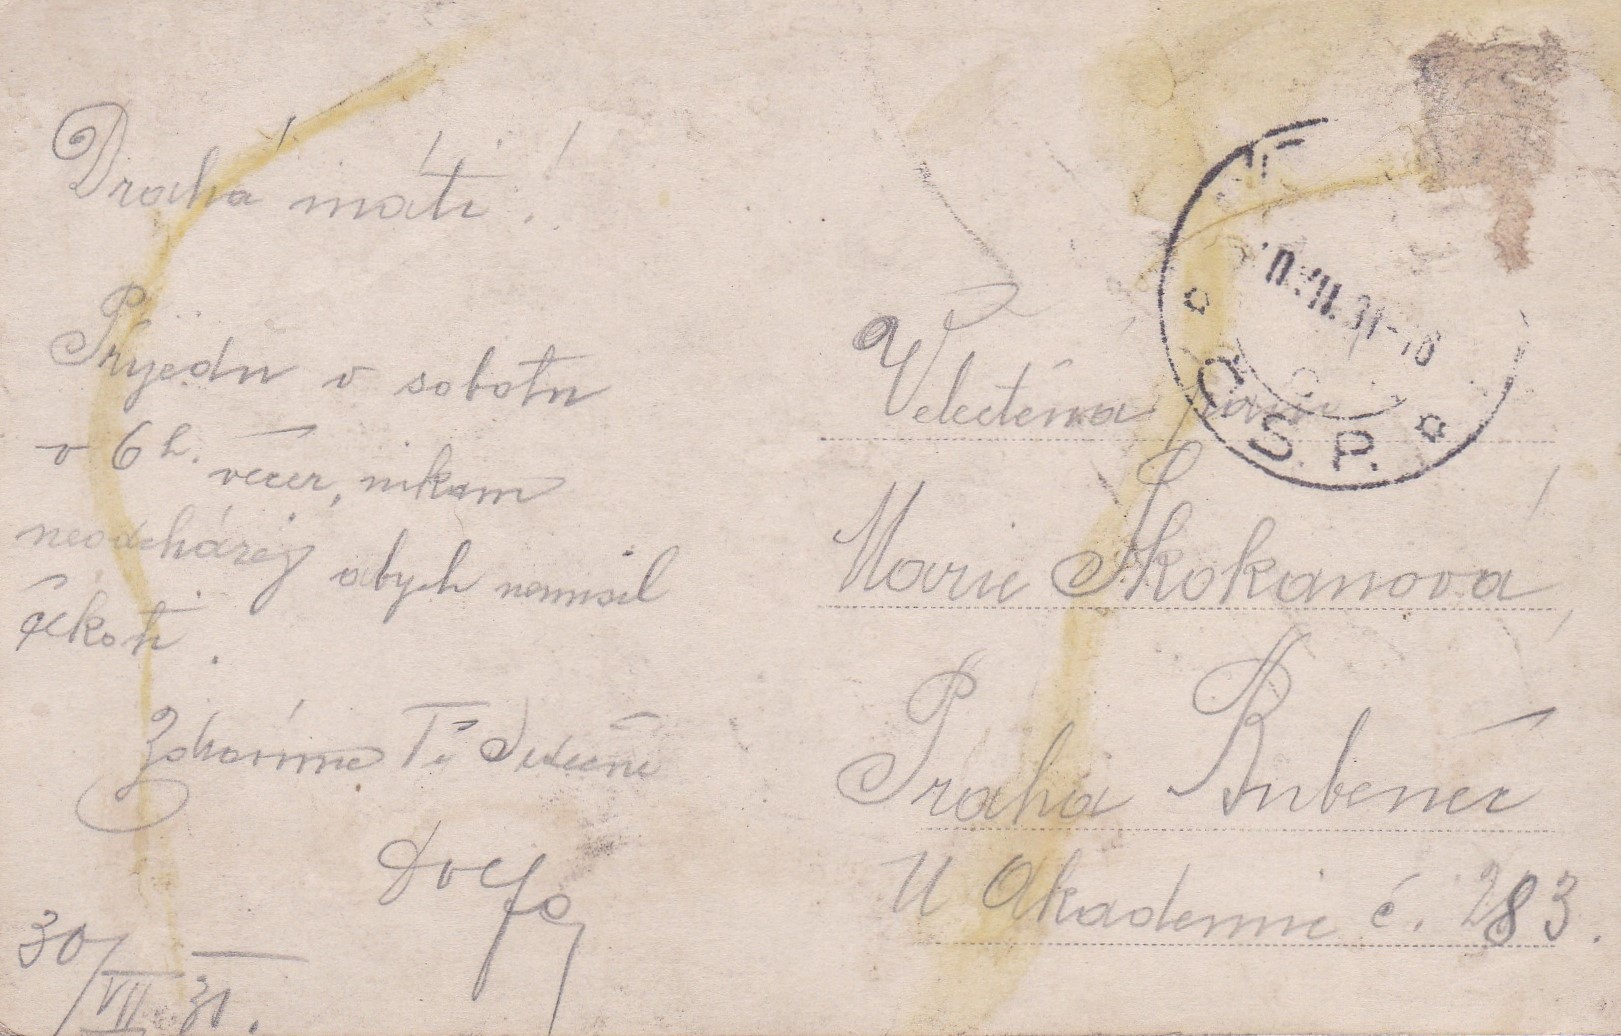 Drahá máti!
Přijedu v sobotu
v 6 h. večer, nikam
neodcházej abych nemusil
čekati.
Zdravíme Tě srdečně
30/VII 31.
Velectěná paní
Marie Skokanová,
Praha Bubeneč
U Akademie č. 283.
VII.31-18
Č.S.P.